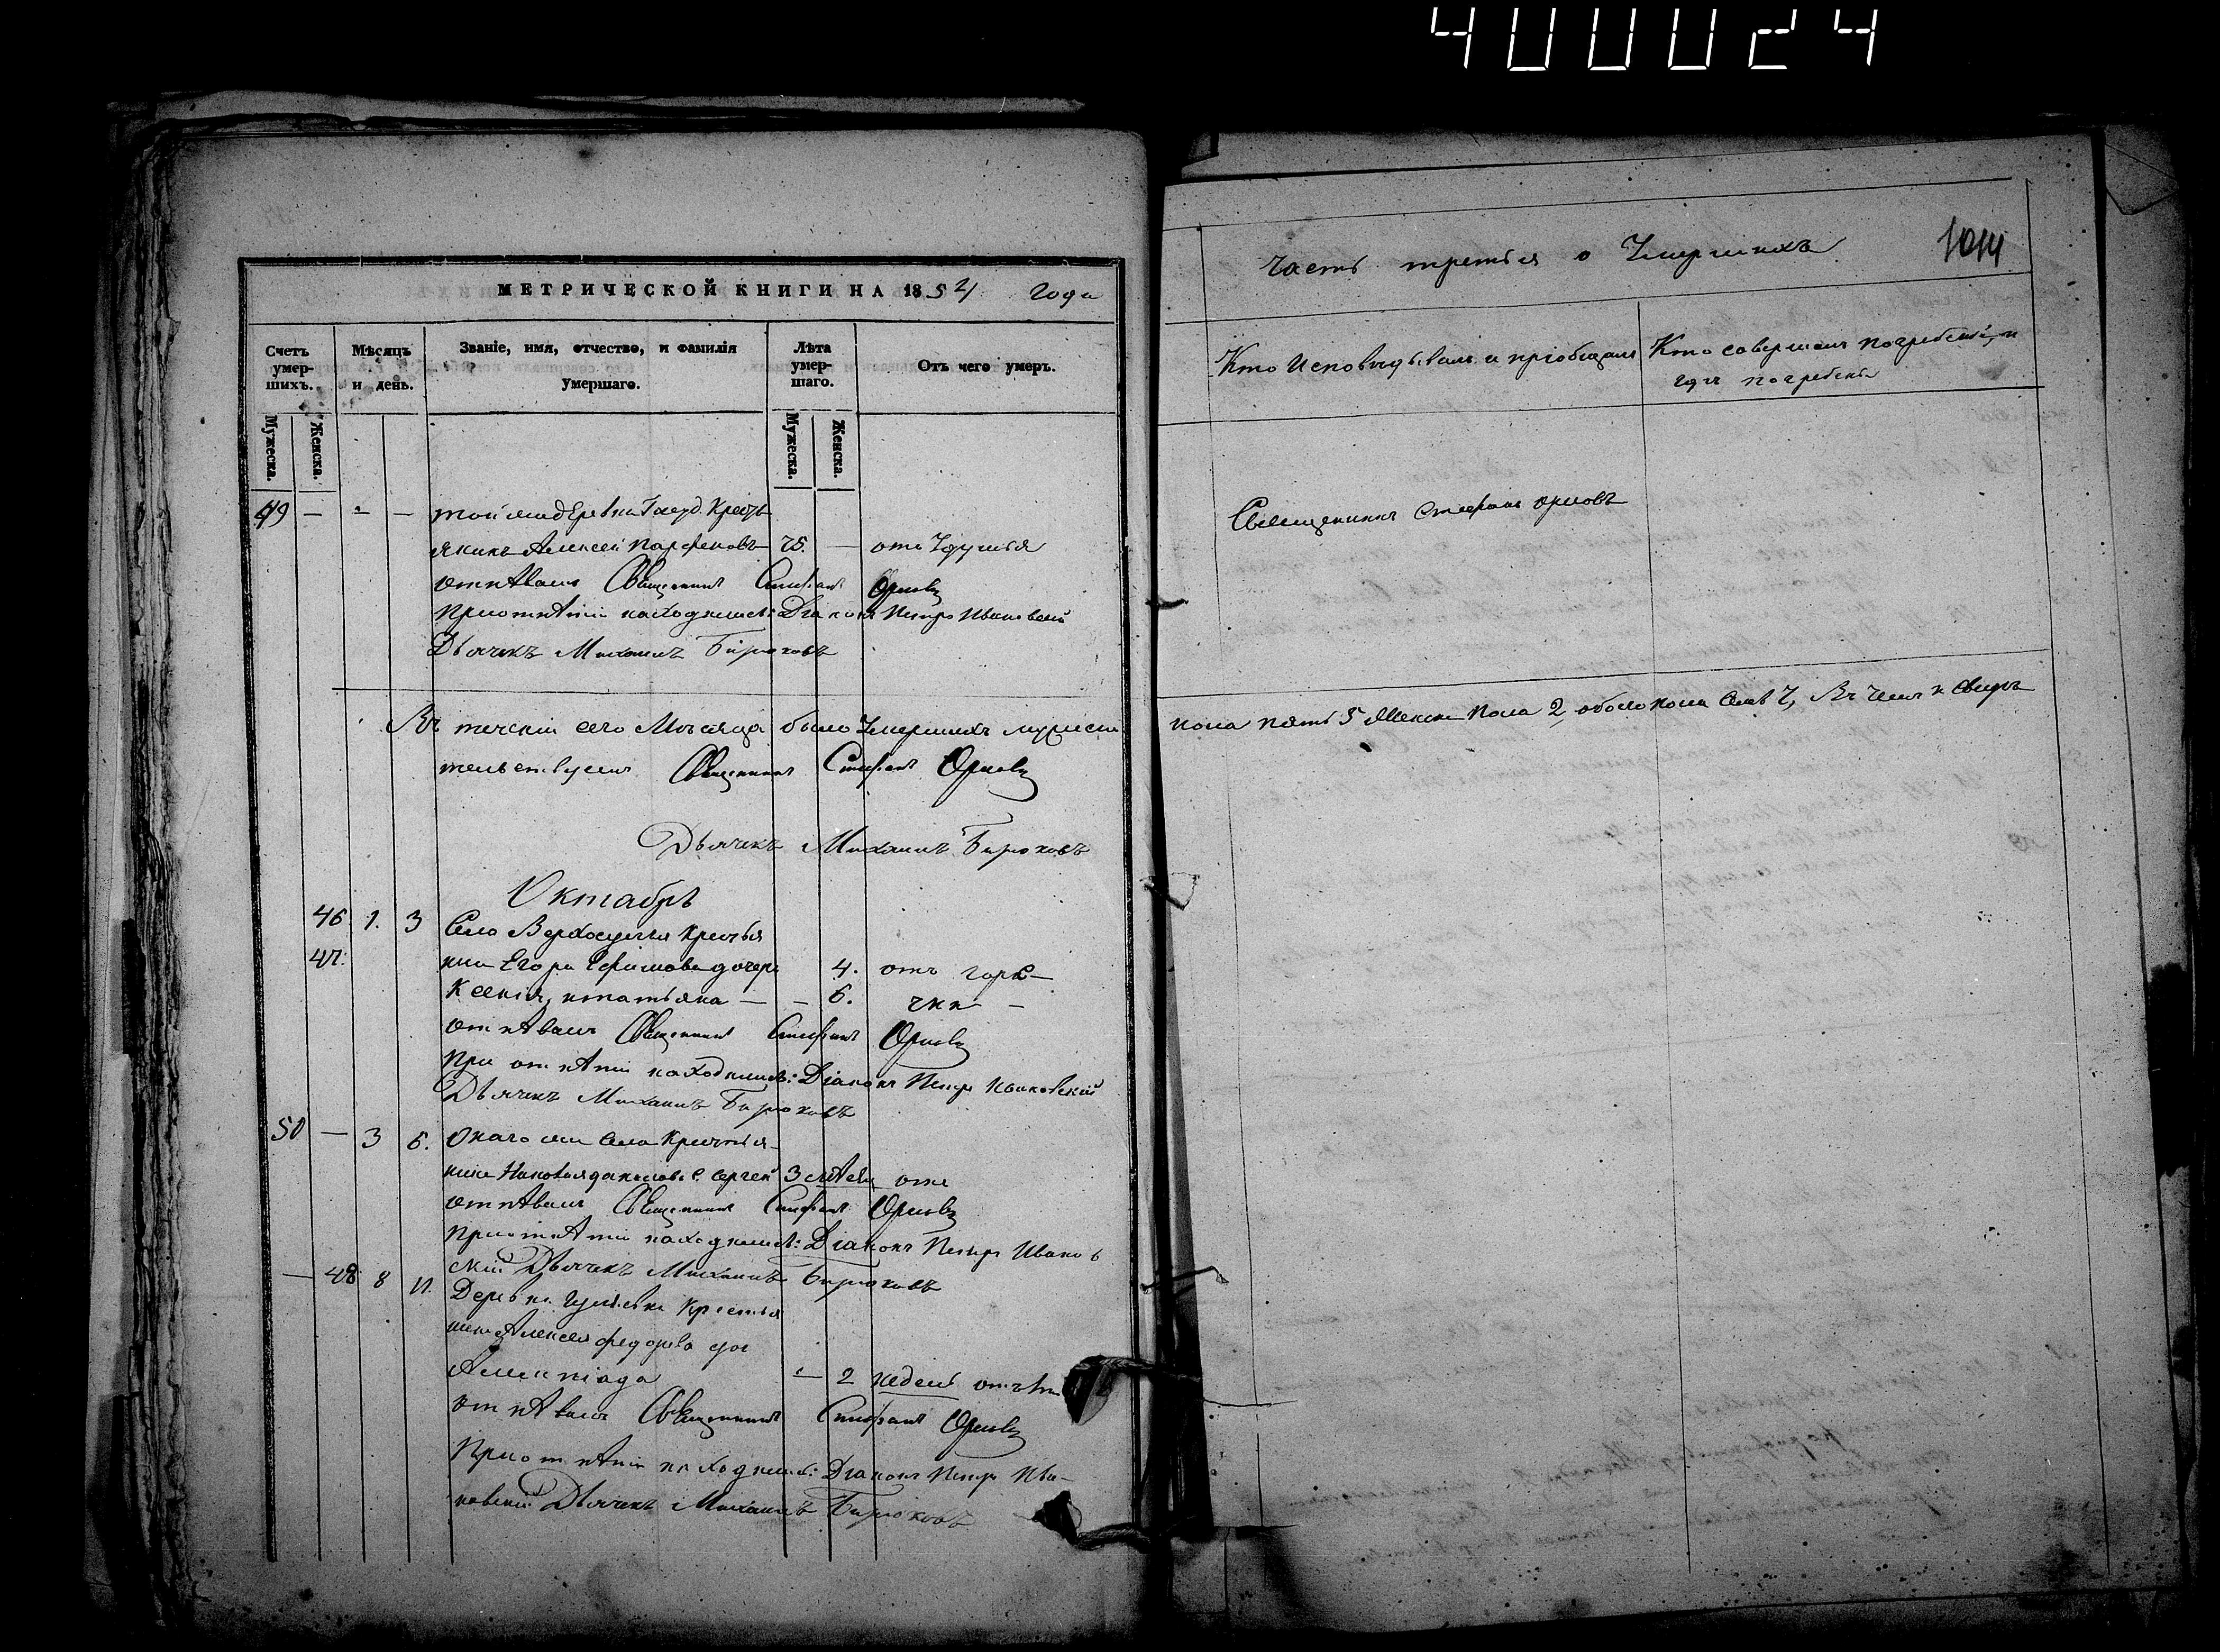 400024
МЕТРИЧЕСКОЙ КНИГИ НА 1854 года
Счетъ умерших. Мѣсяцъ и день. Званіе, имя, отчество, и фамилія умершаго. Лѣта умершаго. Отъ чего умеръ.
Мужеска. Женска. Мужеска. Женска.
49 — - — той же деревни Государ. Крестья
янинъ Алексей Парфеновъ 75. — отъ Удушья
отпѣвалъ Священникъ Стефанъ Орловъ
При отпѣтіи находились: Діаконъ Петръ Ивановскій
Дьячекъ Михаилъ Бирюковъ
Въ теченіи сего Мѣсяца было Умершихъ мужеска
тельствуемъ Священникъ Стефанъ Орловъ
Дьячекъ Михаилъ Бирюковъ
Октабрь
46 1. 3 Село Верхосулья Крестья
47. нина Егора дочери 4. отъ горя-
Ксенія, и татьяна — — 6. чки —
отпѣвалъ Священникъ Стефанъ Орловъ
При отпѣтіи находились: Діаконъ Петръ Ивановскій
Дьячекъ Михаилъ Бирюковъ
50 — 3 5. Онаго же Села Крестья-
нина с. Сергей 3 отъ
отпѣвалъ Священникъ Стефанъ Орловъ
При отпѣтіи находились: Діаконъ Петръ Иванов
скій Дьячекъ Михаилъ Бирюковъ
— 48 8 11. Деревни Крестья
нина Алексея федорова доч
— 2 недель отъ
отпѣвалъ Священникъ Стефанъ Орловъ
При отпѣтіи находились: Діаконъ Петръ Ива-
новскій Дьячекъ Михаилъ Бирюковъ
часть третья о Умершихъ 1014
Кто Исповедывалъ и пріобщалъ
Кто совершалъ погребеніе, и
где погребены
Священникъ Стефанъ Орловъ
пола пять 5 Женска Пола 2, обоего пола Семь 7, Въ чемъ и Свидѣ